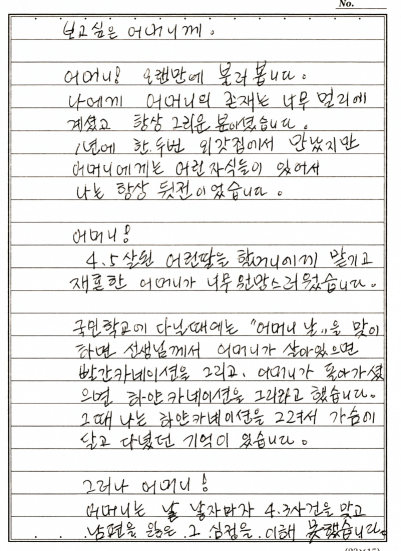 No.
보고싶은 어머니께.
어머니! 오랜만에 불러 봅니다.
나에게 어머니의 존재는 너무 멀리에
계셨고 항상 그리운 분이셨습니다.
1년에 한, 두번 외갓집에서 만났지만
어머니에게는 어린 자식들이 있어서
나는 항상 뒷전이었습니다.
어머니!
4.5살된 어린딸을 할머니에게 맡기고
재혼한 어머니가 너무 원망스러웠습니다.
국민학교에 다닐때에는 "어머니 날"을 맞이
하면 선생님께서 어머니가 살아있으면
빨간카네이션을 그리고, 어머니가 돌아가셨
으면 하얀 카네이션을 그리라고 했습니다.
그때 나는 하얀카네이션을 그려서 가슴에
달고 다녔던 기억이 있습니다.
그러나 어머니!
어머니는 날 낳자마자 4.3사건을 맞고
남편을 잃은 그 심정을 이해 못했습니다.